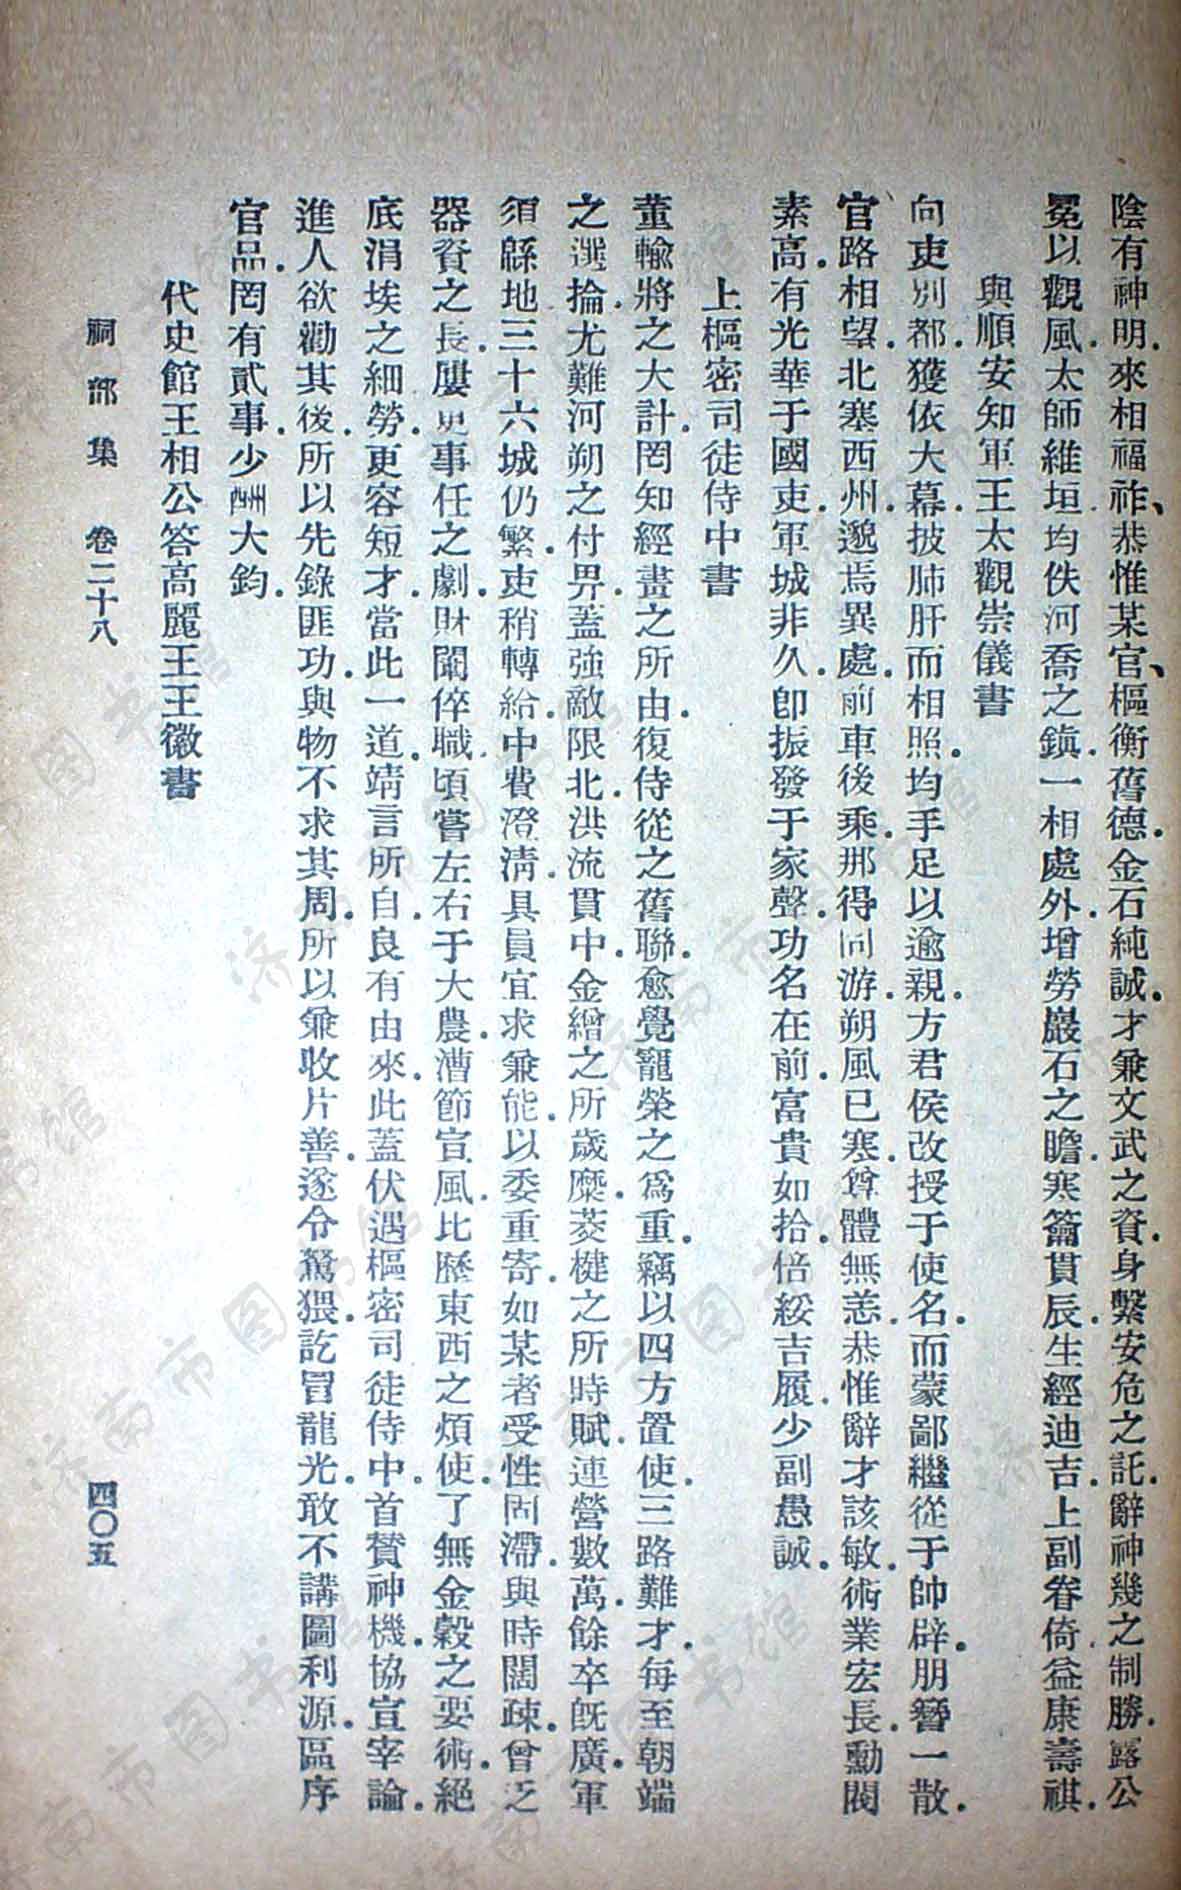 陰有神明.來相福祚、恭惟某官、樞衡舊德.金石純誠.才兼文武之資.身繫安危之託.辭神幾之制勝.露公
冕以觀風.太師維垣.均佚河喬之鎮.一相處外.增勞巖石之瞻.寒籥貫辰.生經迪吉.上副眷倚.益康壽祺.
與順安知軍王太觀崇儀書
向吏別都.獲依大幕.披肺肝而相照.均手足以逾親.方君侯改授于使名.而蒙鄙繼從于帥辟.朋簪一散.
官路相望.北塞西州.邈焉異處.前車後乘.那得同游.朔風已寒.尊體無恙.恭惟辭才該敏.術業宏長.勳閥
素高.有光華于國吏.軍城非久.卽振發于家聲.功名在前.富貴如拾.倍綏吉履.少副愚誠.
上樞密司徒侍中書
董輸將之大計.罔知經畫之所由.復侍從之舊聯.愈覺寵榮之爲重.竊以四方置使.三路難才.每至朝端
之選掄.尤難河朔之付畀.蓋強敵限北.洪流貫中.金繒之所歲糜.茭楗之所時賦.連營數萬.餘卒旣廣.軍
須緜地三十六城.仍繁吏稍轉給.中費澄淸.具員宜求兼能.以委重寄.如某者受性固滯.與時闊疎.曾乏
器資之長.屢更事任之劇.財闈倅職.頃嘗左右于大農.漕節宣風.比歷東西之煩使.了無金穀之要術.絕
底涓埃之細勞.更容短才.當此一道.靖言所自.良有由來.此蓋伏遇樞密司徒侍中.首贊神機.協宣宰論.
進人欲勸其後.所以先錄匪功.與物不求其周.所以兼收片善.遂令駑猥.訖冒龍光.敢不講圖利源.區序
官品.罔有貳事.少酬大鈞.
代史館王相公答高麗王王徽書
祠部集 卷二十八 四〇五
济南市图书馆